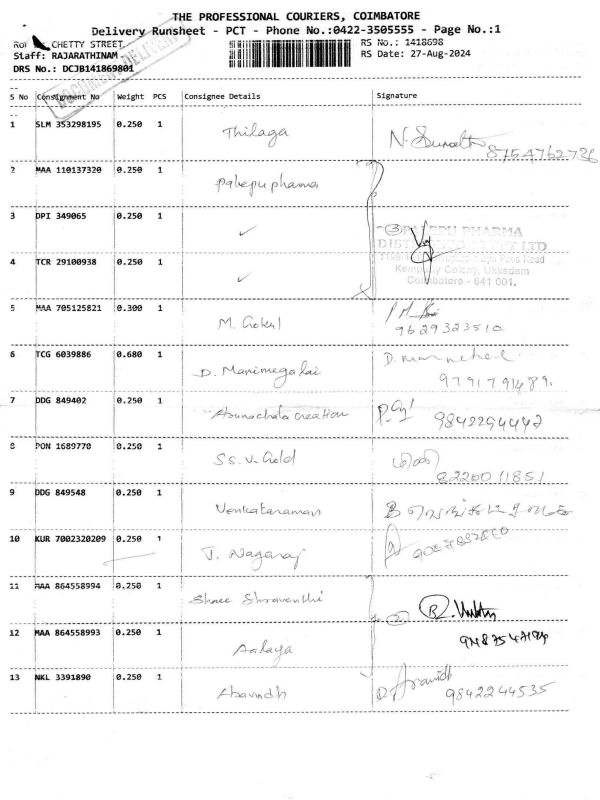 THE PROFESSIONAL COURIERS, COIMBATORE
Delivery Runsheet - PCT - Phone No.:0422-3505555 - Page No.:1
CHETTY STREET RS No.: 1418698
Staff: RAJARATHINAM RS Date: 27-Aug-2024
DRS No.: DCJB141869801
S No Consignment No Weight PCS Consignee Details Signature
1 SLM 353298195 0.250 1 Thilaga
8754762736
2 MAA 110137320 0.250 1 Palepu pharma
3 DPI 349065 0.250 1 ✓ 3 PALEPU PHARMA
PVT LTD
4 TCR 29100938 0.250 1 ✓
Colony, Ukkadam
Coimbatore - 641 001.
5 MAA 705125821 0.300 1 M. Gokul
9629323510
6 TCG 6039886 0.680 1 D. Manimegalai
9791791489.
7 DDG 849402 0.250 1 Arunachala creation
9842294442
8 PON 1689770 0.250 1 SS. V. Gold
82200 11851
9 DDG 849548 0.250 1 Venkataraman
10 KUR 7002320209 0.250 1 J. Nagaraj
11 MAA 864558994 0.250 1 Shree Shravanthi
2
12 MAA 864558993 0.250 1 Aalaya
13 NKL 3391890 0.250 1 Aravindh D. Aravindh
9842244535